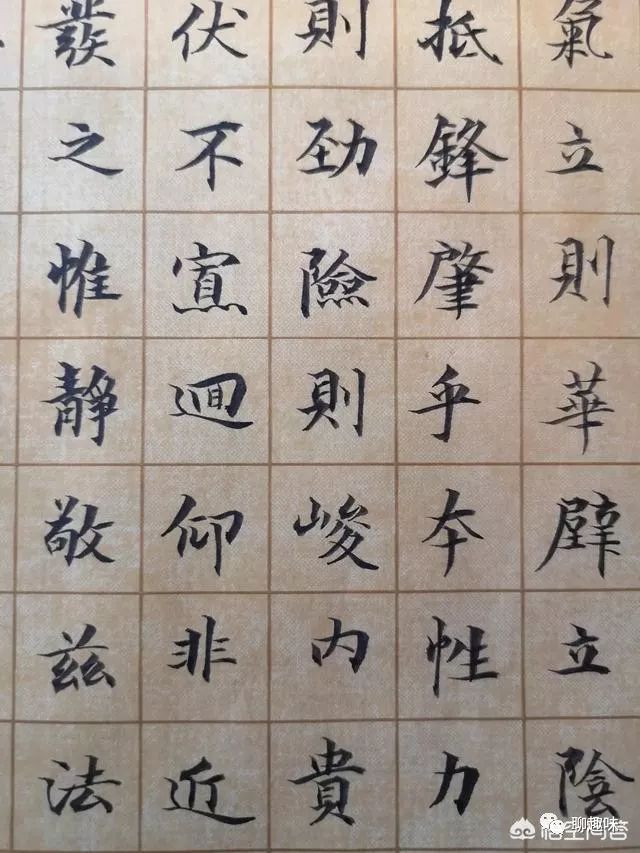 氣立則華立陰
抵鋒肇乎本性力
則勁險則峻內貴
伏不迴仰非近
發之惟靜敬茲法
聊趣味
悟空问答